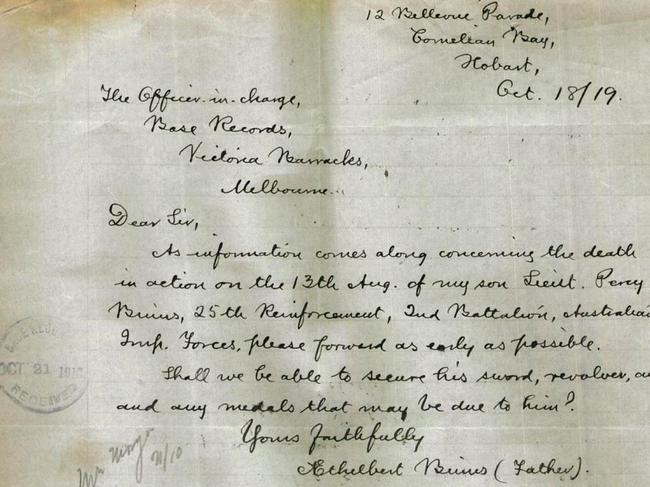 12 Bellevue Parade,
Cornelian Bay,
Hobart,
Oct. 18/19.
The Officer-in-charge,
Base Records,
Victoria Barracks,
Melbourne.
Dear Sir,
As information comes along concerning the death
in action on the 13th Aug. of my son Lieut. Percy
Binns, 25th Reinforcement, 2nd Battalion, Australia
Imp. Forces, please forward as early as possible.
Shall we be able to secure his sword, revolver,
and any medals that may be due to him?
Yours faithfully
Ethelbert Binns (Father).
OCT 21
RECEIVED
Mr
21/10